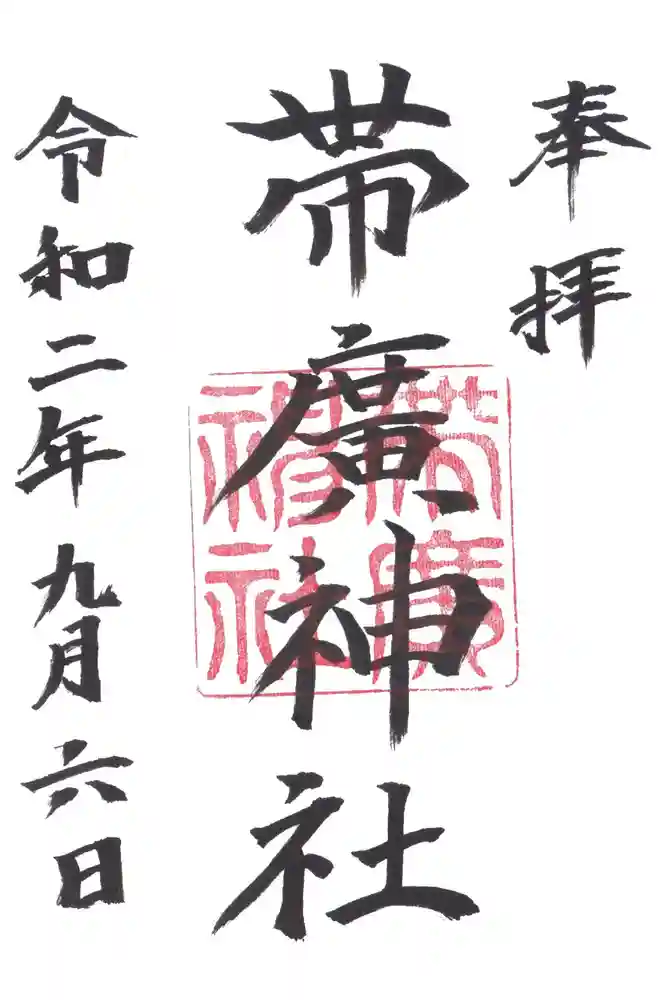 奉拝
帯廣神社
令和二年九月六日
帯廣神社